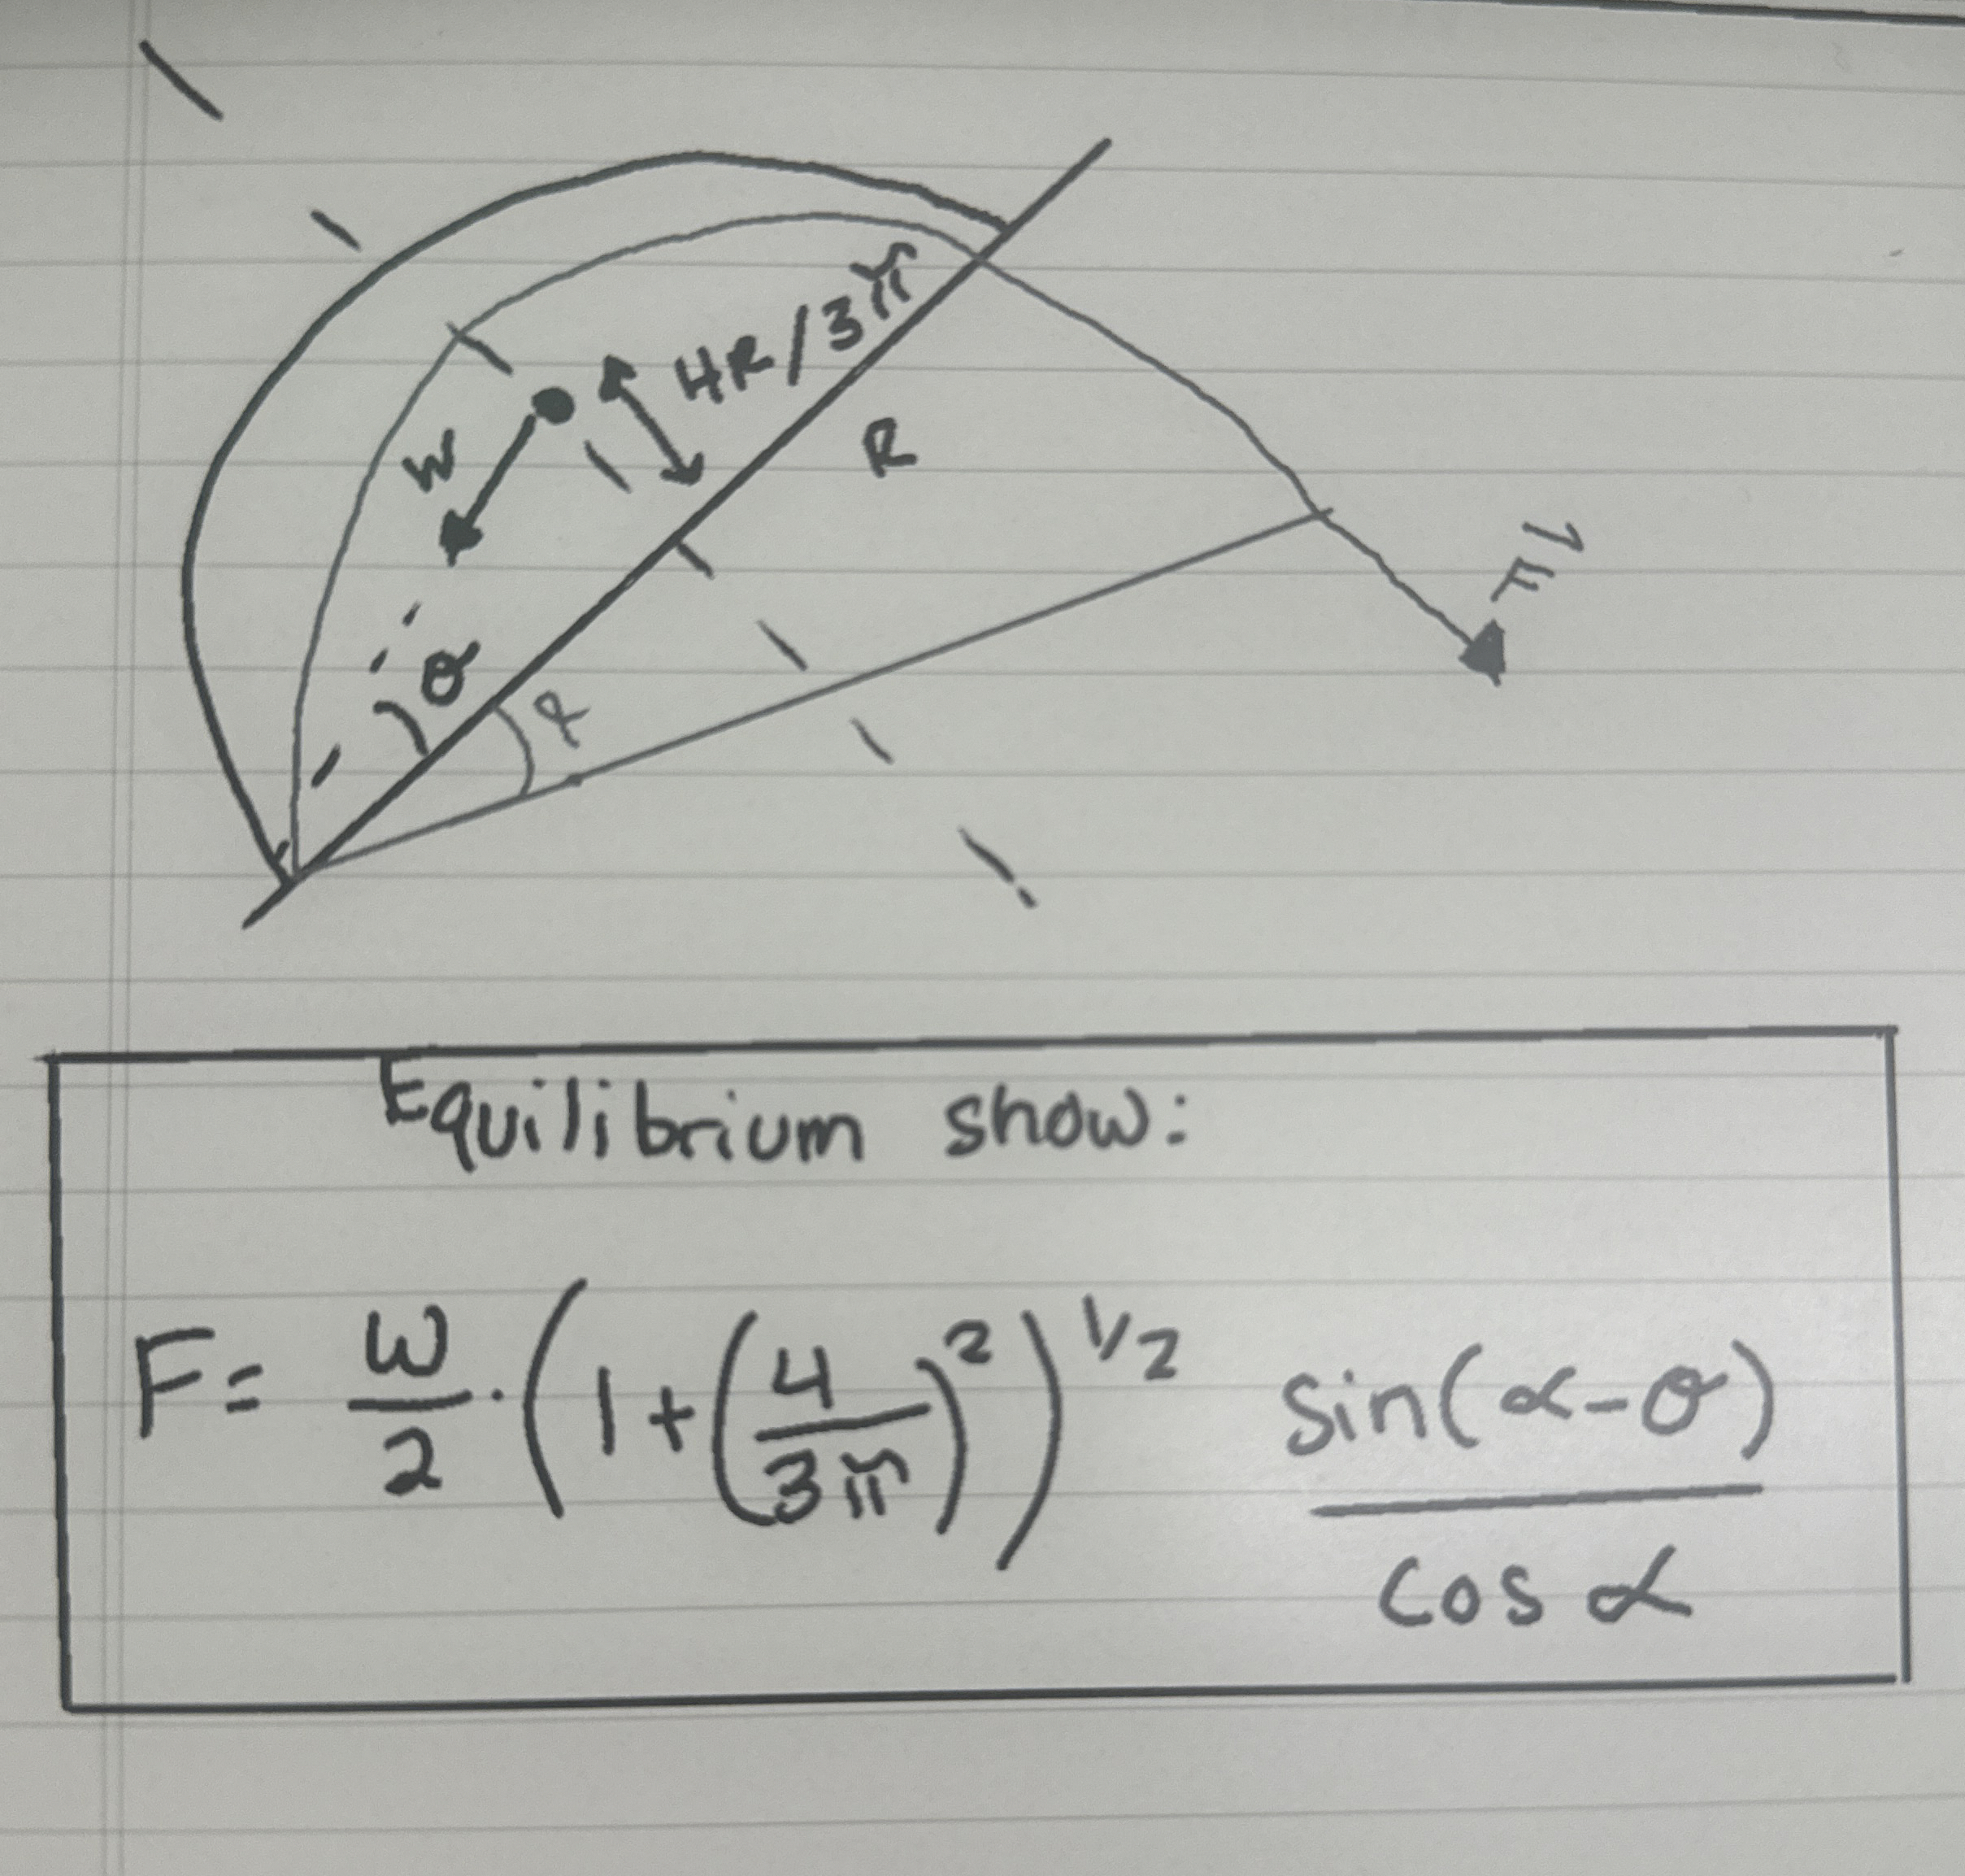 4R/3π
R
W
F⃗
θ
α
Equilibrium show:
F = W/2 · (1 + (4/3π)²)^1/2 sin(α-θ)/cos α